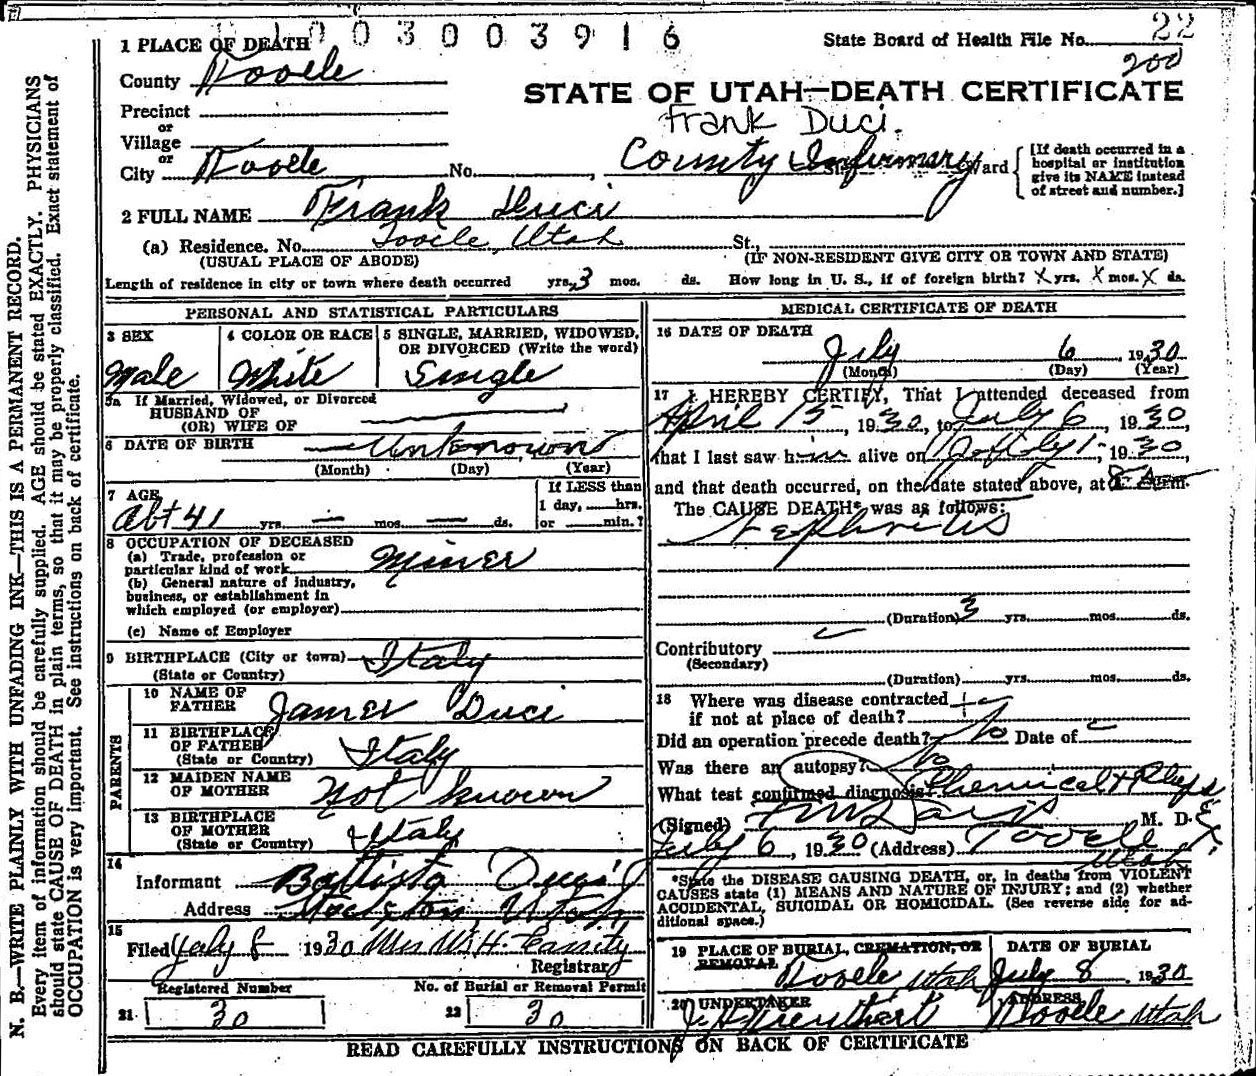 1 0 0 3 0 0 3 9 1 6
1 PLACE OF DEATH
State Board of Health File No. 22
200
County Tooele
STATE OF UTAH—DEATH CERTIFICATE
Precinct
Frank Duci.
or
Village
or
City Tooele No. , County Infirmary Ward
[If death occurred in a
hospital or institution
give its NAME instead
of street and number.]
2 FULL NAME Frank Duci
(a) Residence. No. Tooele, Utah St.,
(USUAL PLACE OF ABODE) (IF NON-RESIDENT GIVE CITY OR TOWN AND STATE)
Length of residence in city or town where death occurred yrs. 3 mos. ds. How long in U. S., if of foreign birth? X yrs. X mos. X ds.
PERSONAL AND STATISTICAL PARTICULARS
3 SEX 4 COLOR OR RACE 5 SINGLE, MARRIED, WIDOWED,
OR DIVORCED (Write the word)
Male White Single
5a If Married, Widowed, or Divorced
HUSBAND OF
(OR) WIFE OF
6 DATE OF BIRTH Unknown
(Month) (Day) (Year)
7 AGE If LESS than
1 day, hrs.
Abt 41 yrs. — mos. — ds. or min.?
8 OCCUPATION OF DECEASED
(a) Trade, profession or
particular kind of work Miner
(b) General nature of industry,
business, or establishment in
which employed (or employer)
(c) Name of Employer
9 BIRTHPLACE (City or town) Italy
(State or Country)
PARENTS
10 NAME OF
FATHER James Duci
11 BIRTHPLACE
OF FATHER Italy
(State or Country)
12 MAIDEN NAME
OF MOTHER Not known
13 BIRTHPLACE
OF MOTHER Italy
(State or Country)
14
Informant Battista
Address Stockton, Utah
15
Filed July 8 1930 Mrs W. H. Cassity
Registrar
Registered Number No. of Burial or Removal Permit
21 30 22 30
MEDICAL CERTIFICATE OF DEATH
16 DATE OF DEATH
July 6, 1930
(Month) (Day) (Year)
17 I HEREBY CERTIFY, That I attended deceased from
April 15, 1930, to July 6, 1930
that I last saw him alive on July 1, 1930,
and that death occurred, on the date stated above, at 8 A m.
The CAUSE DEATH* was as follows:
Nephritis
(Duration) 3 yrs. mos. ds.
Contributory
(Secondary)
(Duration) yrs. mos. ds.
18 Where was disease contracted
if not at place of death?
Did an operation precede death? No Date of
Was there an autopsy? No
What test confirmed diagnosis? Chemical + Phys
(Signed) M. D.
July 6, 1930 (Address) Tooele
Utah
*State the DISEASE CAUSING DEATH, or, in deaths from VIOLENT
CAUSES state (1) MEANS AND NATURE OF INJURY; and (2) whether
ACCIDENTAL, SUICIDAL OR HOMICIDAL. (See reverse side for ad-
ditional space.)
19 PLACE OF BURIAL, CREMATION, OR DATE OF BURIAL
REMOVAL
Tooele Utah July 8 1930
20 UNDERTAKER ADDRESS
Tooele Utah
READ CAREFULLY INSTRUCTIONS ON BACK OF CERTIFICATE
N. B.—WRITE PLAINLY WITH UNFADING INK—THIS IS A PERMANENT RECORD.
Every item of information should be carefully supplied. AGE should be stated EXACTLY. PHYSICIANS
should state CAUSE OF DEATH in plain terms, so that it may be properly classified. Exact statement of
OCCUPATION is very important. See instructions on back of certificate.